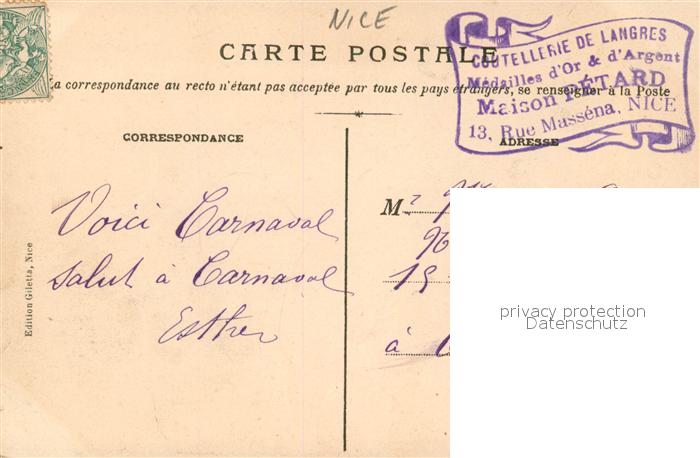 NICE
CARTE POSTALE
COUTELLERIE DE LANGRES
Médailles d'Or & d'Argent
Maison RÉTARD
13, Rue Masséna, NICE
La correspondance au recto n'étant pas acceptée par tous les pays étrangers, se renseigner à la Poste
CORRESPONDANCE
ADRESSE
Voici Carnaval
Salut à Carnaval
Esther
M
15
à
Edition Giletta, Nice
privacy protection
Datenschutz